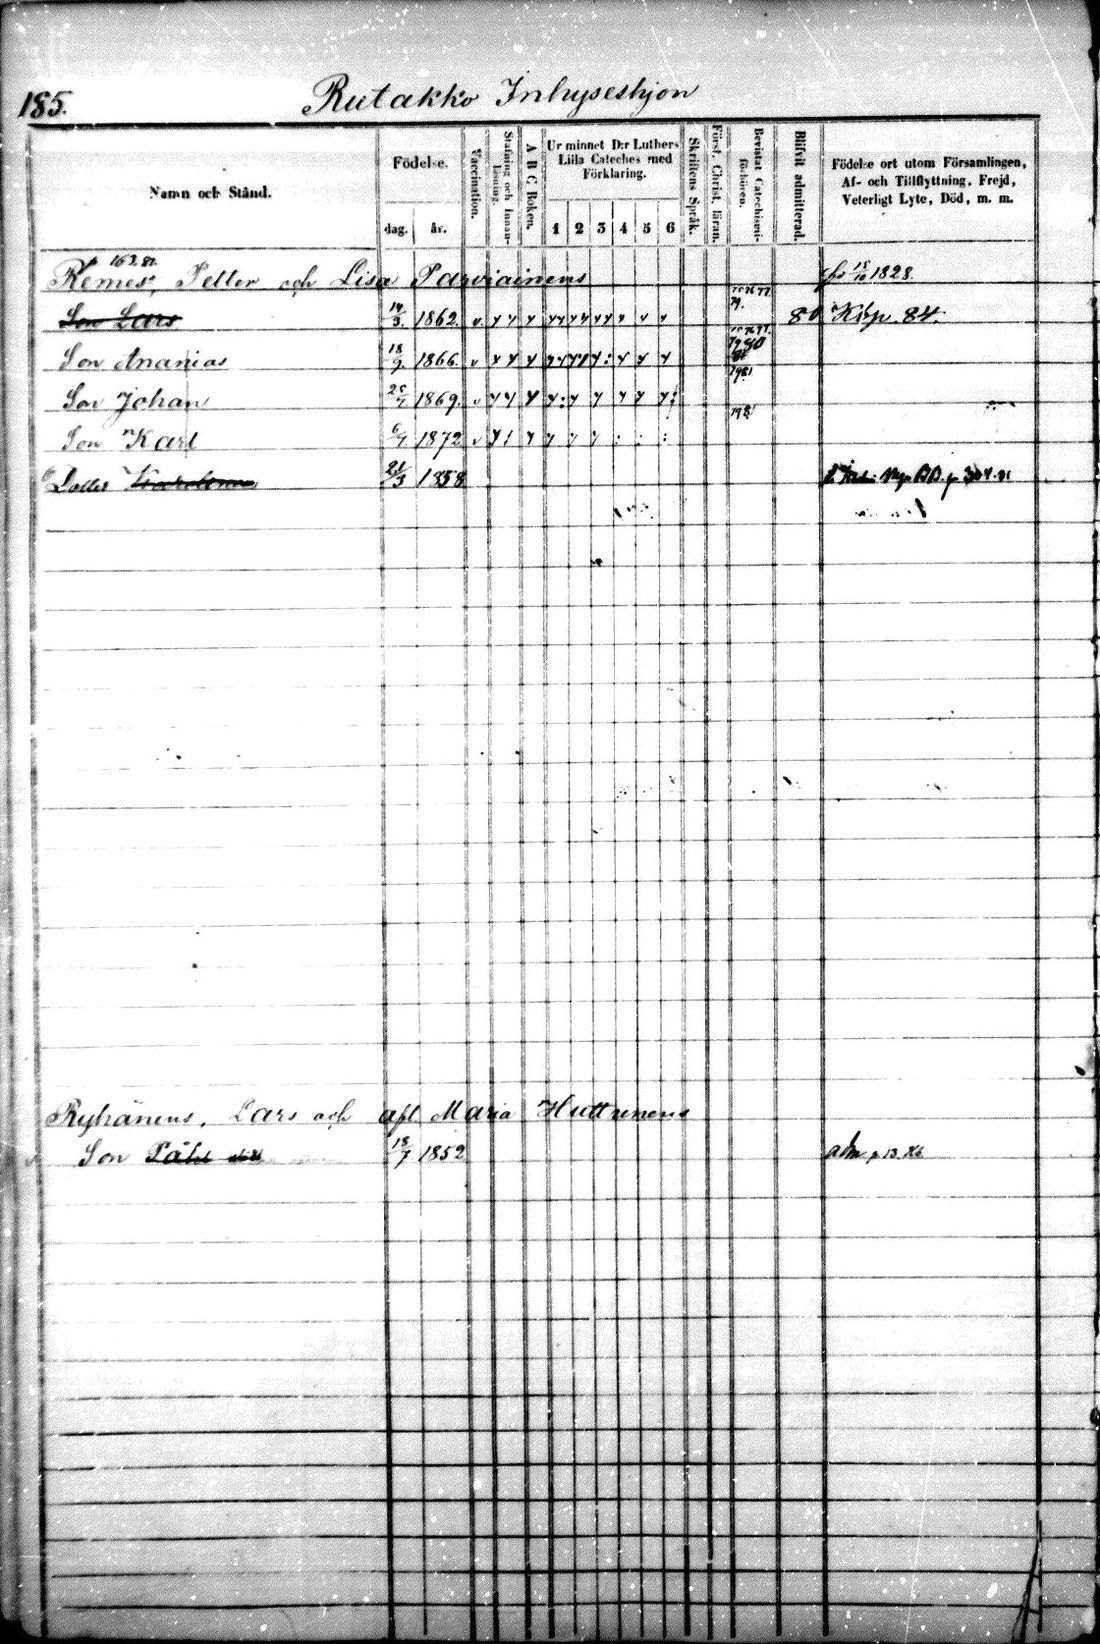 185. Rutakko Inhyseshjon
Namn och Stånd.
Födelse.
dag. år.
Vaccination.
Stafning och Innanläsning.
A B C Boken.
Ur minnet D:r Luthers
Lilla Cateches med
Förklaring.
1 2 3 4 5 6
Skriftens Språk.
Först. Christ. läran.
Bevistat Catechismiförhören.
Blifvit admitterad.
Födelse ort utom Församlingen,
Af- och Tillflyttning, Frejd,
Veterligt Lyte, Död, m. m.
p 162.81.
Remes, Petter och Lisa Parviainens 15/10 1828.
Son Lars 14/3 1862. v 79. 80 Köp. 84.
Son Ananias 18/9 1866. v 80
Son Johan 25/7 1869. v
Son Karl 6/7 1872 v
Dotter 21/3 1858 p 304.
Ryhänens, Lars och afl. Maria Huttunens
Son Påhl 18/7 1852 p 13.